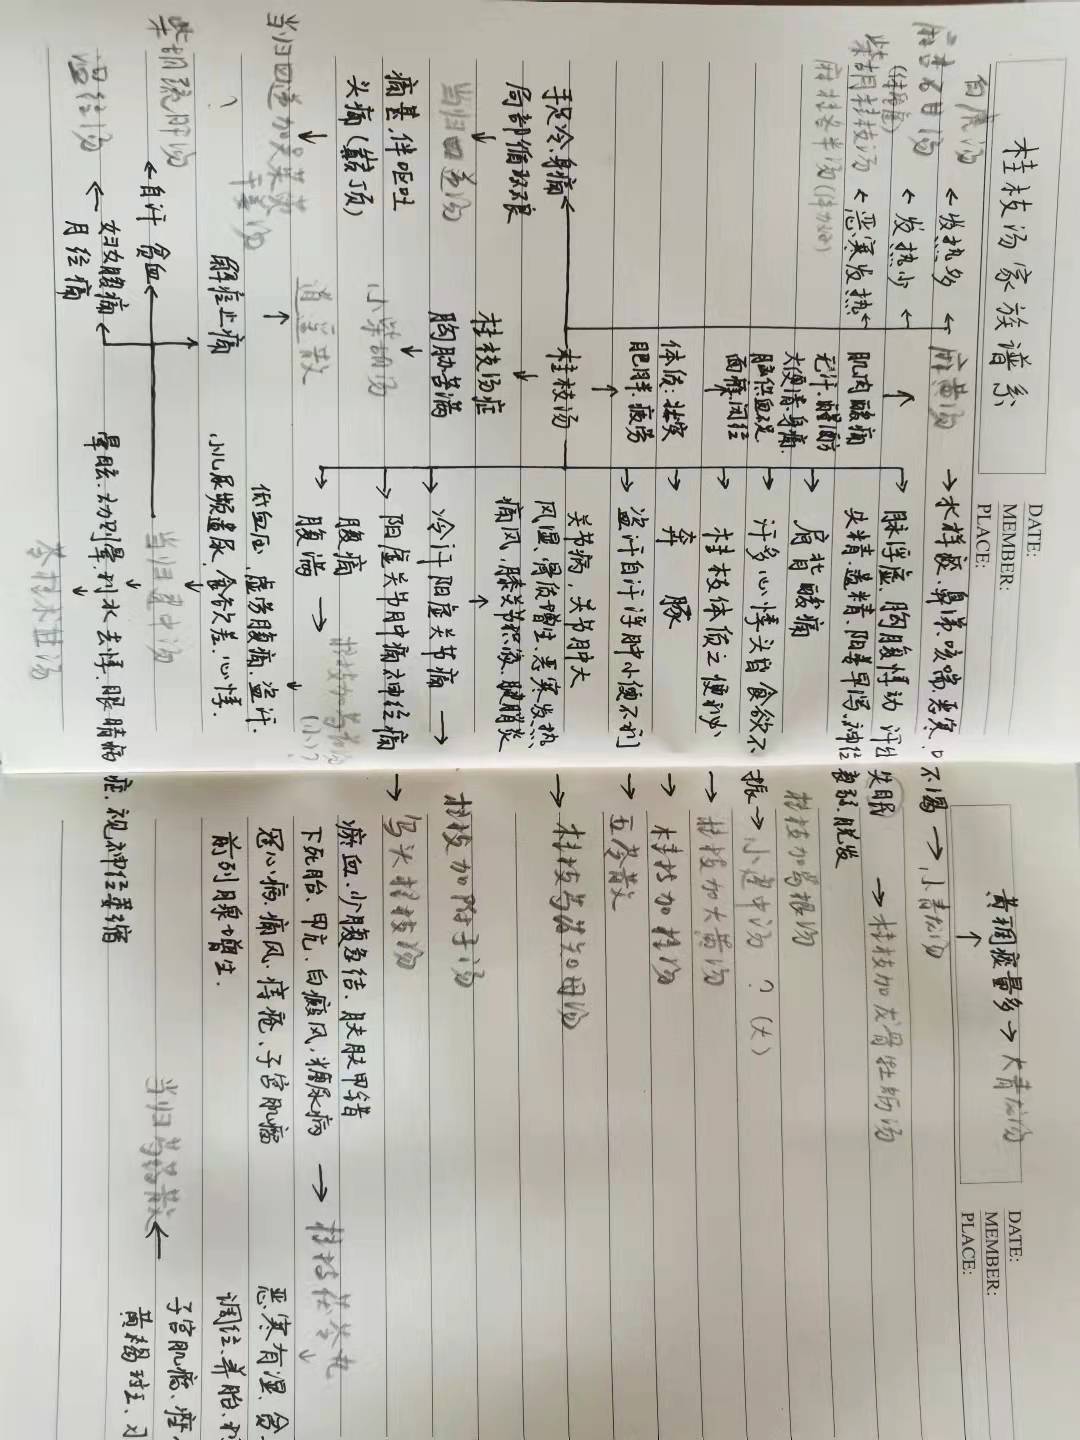 桂枝汤家族谱系
DATE:
MEMBER:
PLACE:
白虎汤 ← 发热多 ← 麻黄汤 → 水样痰、鼻涕、咳喘、恶寒、口不渴 → 小青龙汤
黄稠痰量多 → 大青龙汤
DATE:
MEMBER:
PLACE:
← 发热少 ←
(体格壮)
柴胡桂枝汤 ← 恶寒发热 ←
麻桂各半汤
脉浮虚、胸腹悸动 汗出 失眠
失精、遗精、阳萎早泄、神经衰弱、脱发
→ 桂枝加龙骨牡蛎汤
肌肉酸痛
无汗、醒酒防
大便清、身痛
脑供血不足
面瘫、闭经
肩背酸痛
桂枝加葛根汤
汗多心悸头眩食欲不振 → 小建中汤 ? (大)
桂枝体质之便秘
→ 桂枝加大黄汤
体质:壮实
肥胖、疲劳
奔 豚
→ 桂枝加桂汤
盗汗自汗浮肿小便不利
→ 五苓散
桂枝汤
关节病,关节肿大
风湿、骨质增生、恶寒发热
痛风、膝关节积液、腱鞘炎
→ 桂枝芍药知母汤
手足冷、身痛
局部循环不良
当归四逆汤
桂枝汤症
胸胁苦满
小柴胡汤
冷汗 阳虚关节痛 →
桂枝加附子汤
阳虚关节肿痛神经痛
→ 乌头桂枝汤
痛甚、伴呕吐
头痛(巅顶)
当归四逆加吴茱萸
腹痛
腹满 →
瘀血、少腹急结、肤肤甲错
下死胎、甲亢、白癜风,糖尿病
冠心病、痛风、痔疮、子宫肌瘤
前列腺增生.
→ 桂枝茯苓丸
逍遥散
低血压,虚劳腹痛、盗汗.
小儿尿频遗尿、食欲差、心悸.
解痉止痛
?
恶寒有湿、贫
调经、养胎、
子宫肌瘤、痤
黄褐斑、
当归芍药散
当归建中汤
柴胡疏肝汤
← 自汗 贫血
温经汤
← 妇女腹痛
月经痛
晕眩、动则晕、利水去悸、眼睛病症、视神经萎缩
苓桂术甘汤